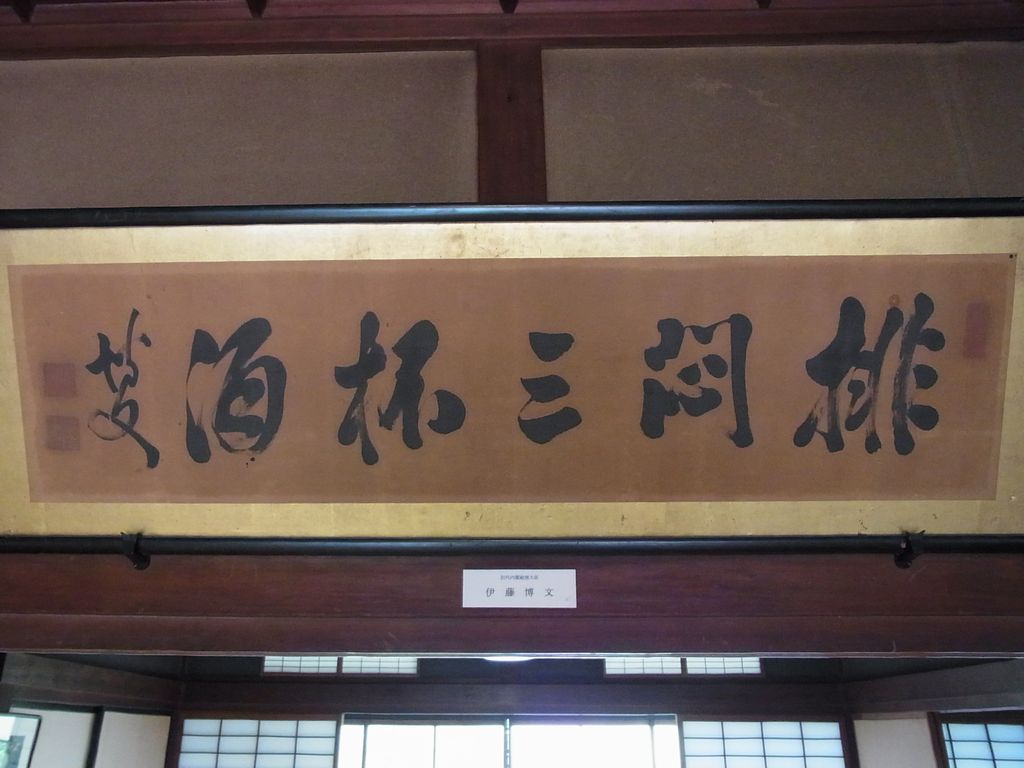 排悶三杯酒
博文
初代内閣総理大臣
伊藤博文